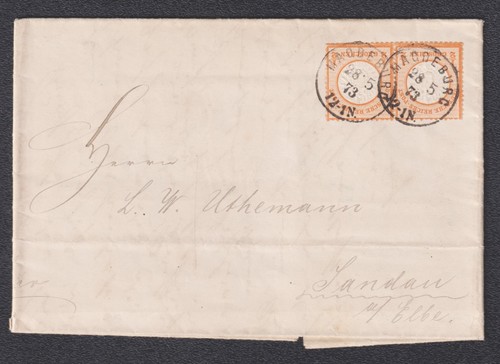 MAGDEBURG
28 5
73
12-1N.
MAGDEBURG
28 5
73
12-1N.
Herrn
L. W. Uthemann
Sandau
a/ Elbe.